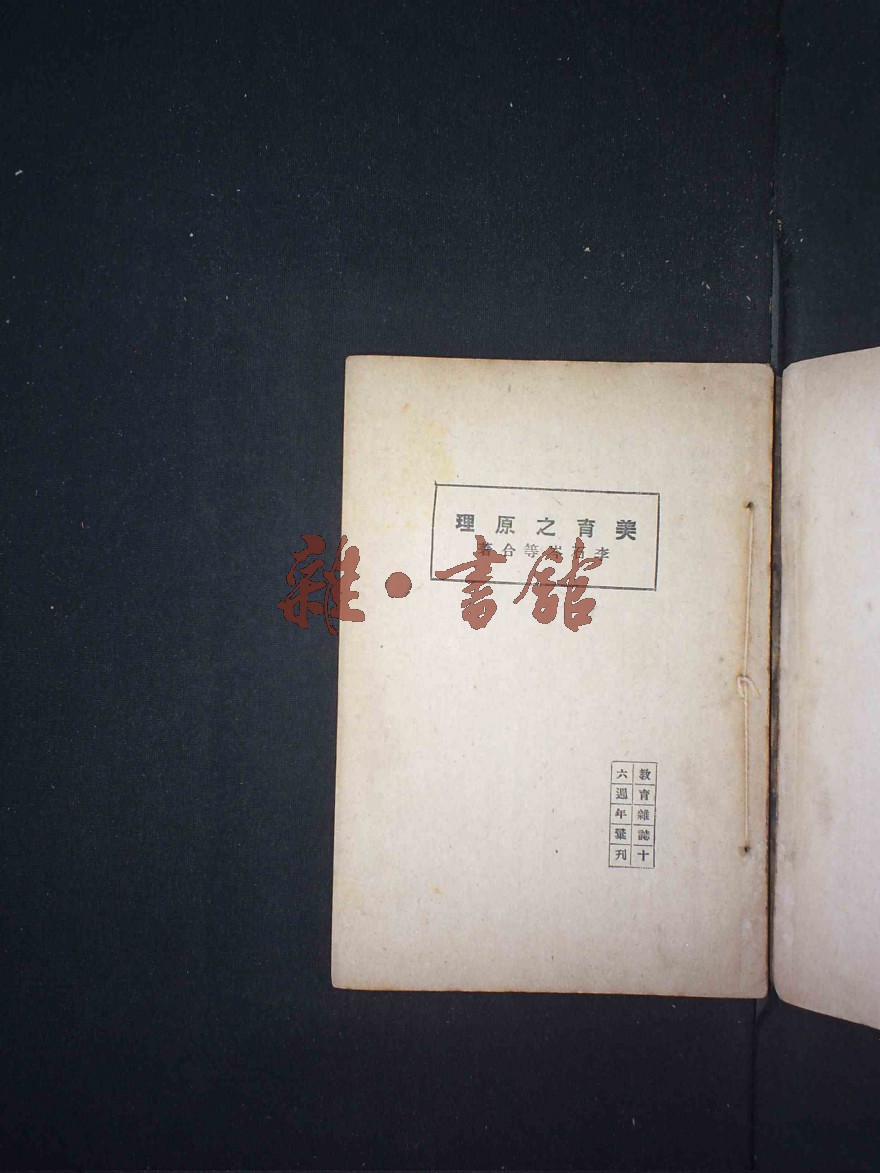 美育之原理
李石岑等合著
雜·書館
教育雜誌十
六週年彙刊